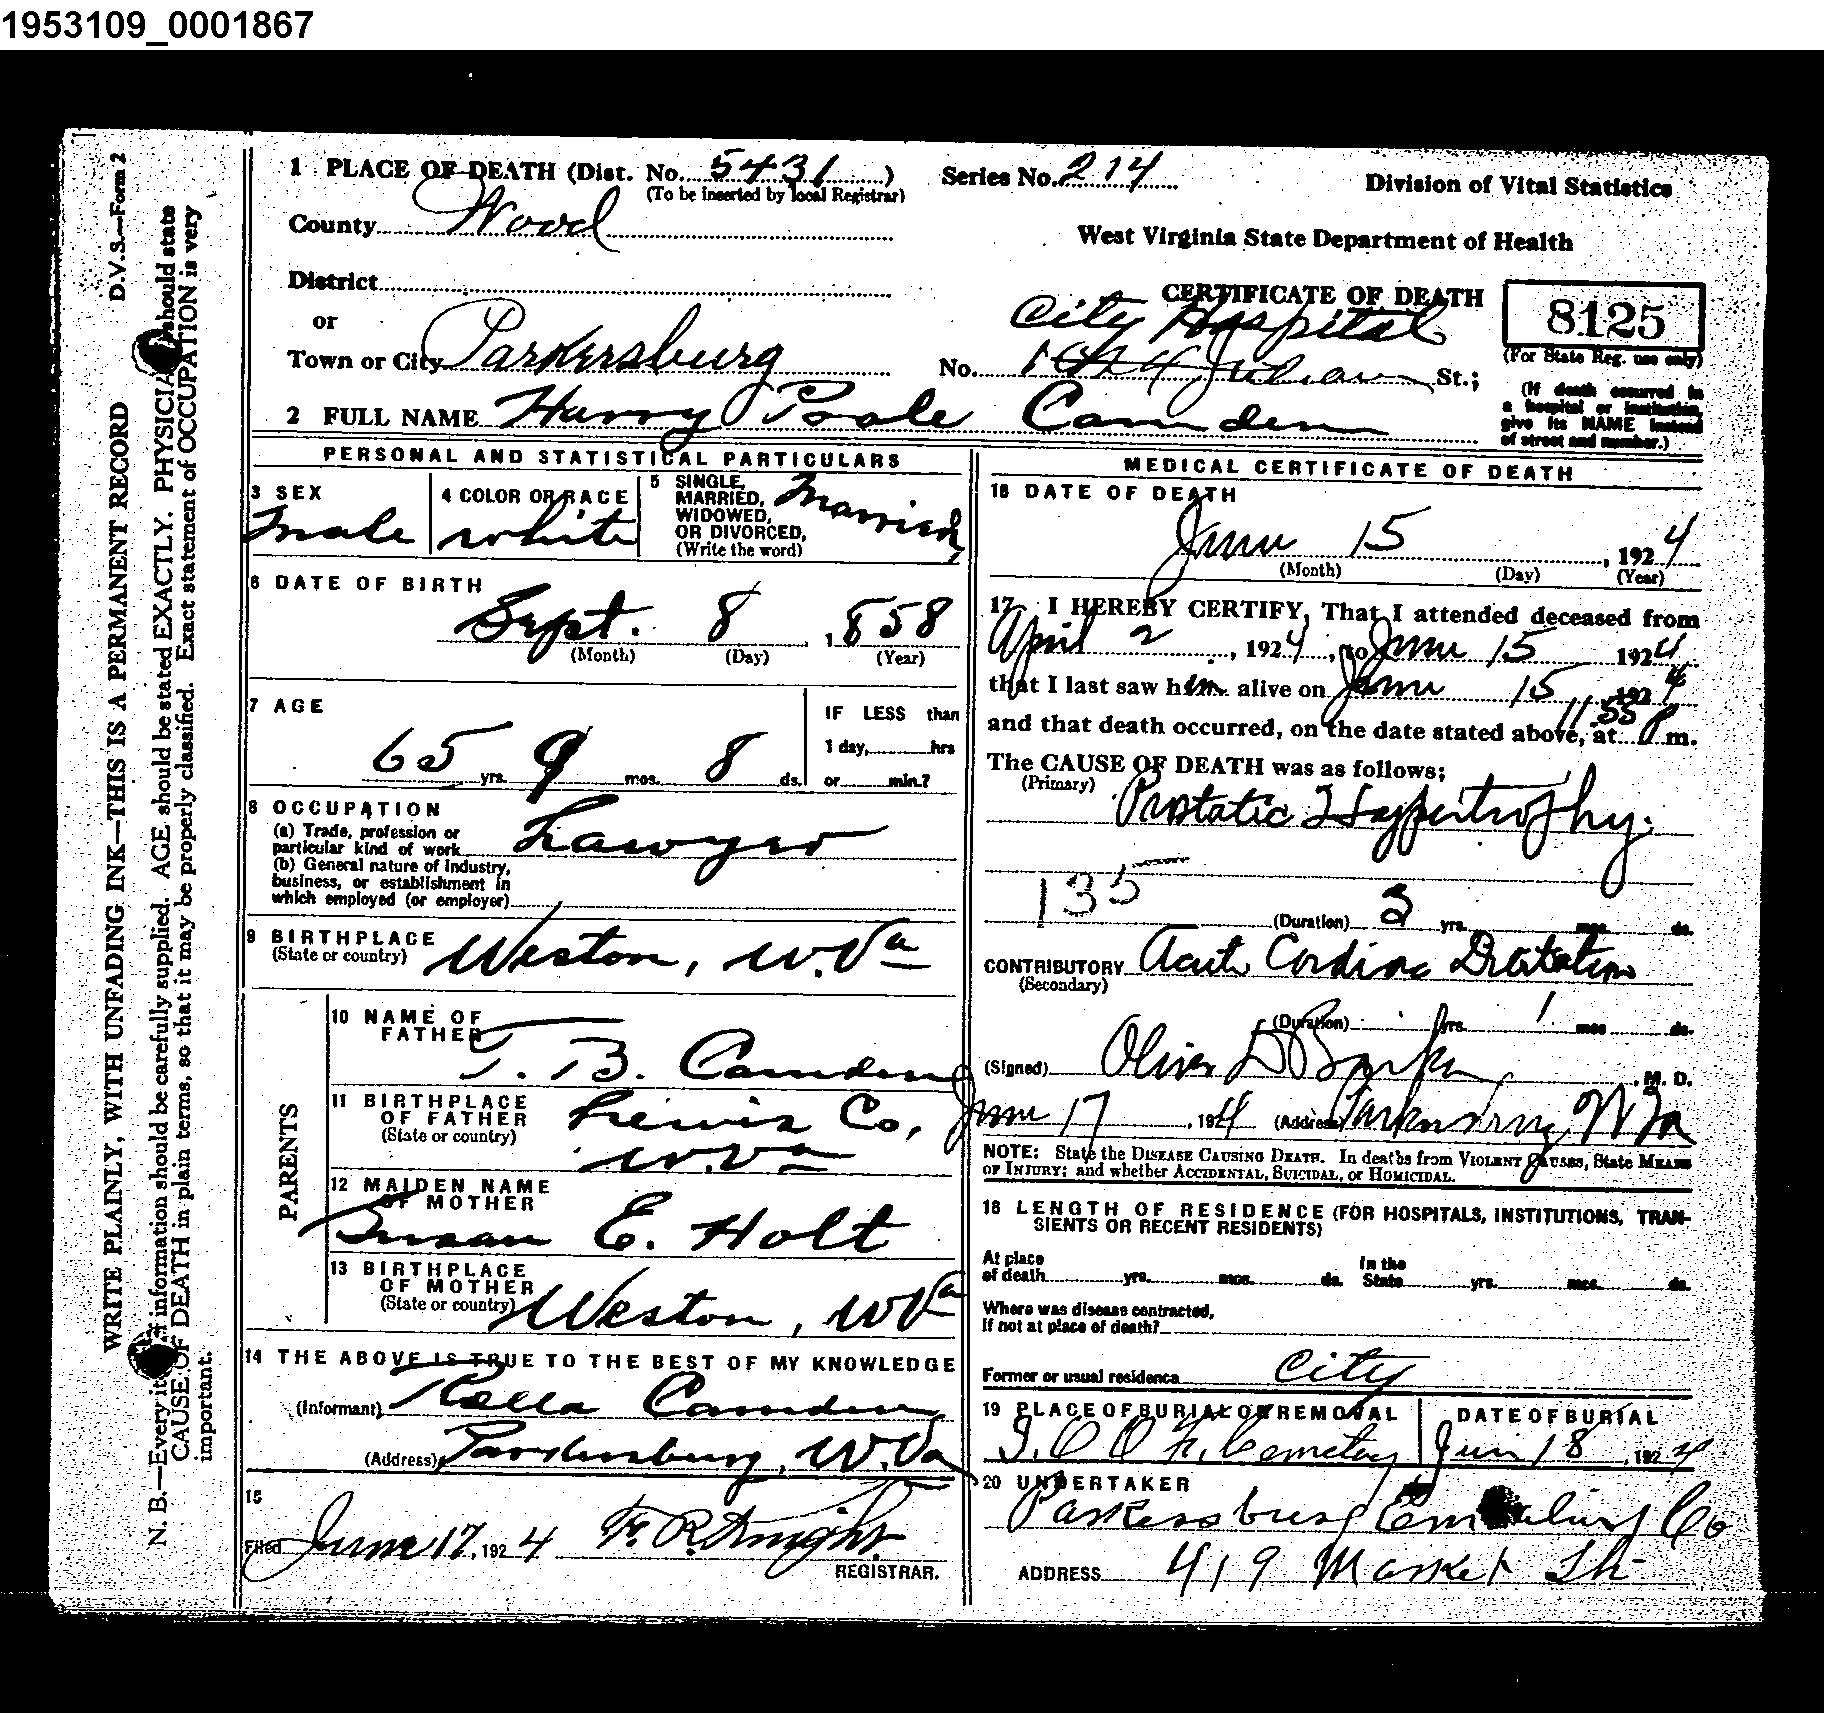 1953109_0001867
1 PLACE OF DEATH (Dist. No. 5431 )
(To be inserted by local Registrar)
Series No. 214
Division of Vital Statistics
County Wood
West Virginia State Department of Health
District
CERTIFICATE OF DEATH
8125
(For State Reg. use only)
or
City Hospital
Town or City Parkersburg
No. Julian St.;
(If death occurred in a hospital or institution, give its NAME instead of street and number.)
2 FULL NAME Harry Poole Camden
PERSONAL AND STATISTICAL PARTICULARS
3 SEX
Male
4 COLOR OR RACE
White
5 SINGLE, MARRIED, WIDOWED, OR DIVORCED,
(Write the word)
Married
6 DATE OF BIRTH
Sept. 8, 1858
(Month) (Day) (Year)
7 AGE
65 yrs. 9 mos. 8 ds.
IF LESS than
1 day, hrs
or min.?
8 OCCUPATION
(a) Trade, profession or
particular kind of work Lawyer
(b) General nature of industry,
business, or establishment in
which employed (or employer)
9 BIRTHPLACE
(State or country) Weston, W.Va
PARENTS
10 NAME OF FATHER
T. B. Camden
11 BIRTHPLACE OF FATHER
(State or country)
Lewis Co,
W.Va
12 MAIDEN NAME OF MOTHER
Susan E. Holt
13 BIRTHPLACE OF MOTHER
(State or country) Weston, W Va
14 THE ABOVE IS TRUE TO THE BEST OF MY KNOWLEDGE
(Informant) Rella Camden
(Address) Parkersburg, W.Va
15
Filed June 17, 1924 F. R. Knight
REGISTRAR.
MEDICAL CERTIFICATE OF DEATH
16 DATE OF DEATH
June 15, 1924
(Month) (Day) (Year)
17 I HEREBY CERTIFY, That I attended deceased from
April 2, 1924, to June 15 1924
that I last saw him alive on June 15, 1924
and that death occurred, on the date stated above, at 11.55 P m.
The CAUSE OF DEATH was as follows;
(Primary) Prostatic Hypertrophy.
135
(Duration) 3 yrs. mos. ds.
CONTRIBUTORY Acute Cardiac Dilatation
(Secondary)
(Duration) yrs. 1 mos ds.
(Signed) Oliver D Barker, M. D.
June 17, 1924 (Address) Parkersburg W Va
NOTE: State the DISEASE CAUSING DEATH. In deaths from VIOLENT CAUSES, State MEANS
OF INJURY; and whether ACCIDENTAL, SUICIDAL, or HOMICIDAL.
18 LENGTH OF RESIDENCE (FOR HOSPITALS, INSTITUTIONS, TRAN-
SIENTS OR RECENT RESIDENTS)
At place of death yrs. mos. ds. In the State yrs. mos. ds.
Where was disease contracted,
If not at place of death?
Former or usual residence City
19 PLACE OF BURIAL OR REMOVAL
I.O.O.F. Cemetery
DATE OF BURIAL
Jun 18, 1924
20 UNDERTAKER
Parkersburg Embalming Co
ADDRESS 419 Market St
D.V.S.—Form 2
WRITE PLAINLY, WITH UNFADING INK—THIS IS A PERMANENT RECORD
N. B.—Every item of information should be carefully supplied. AGE should be stated EXACTLY. PHYSICIANS should state
CAUSE OF DEATH in plain terms, so that it may be properly classified. Exact statement of OCCUPATION is very
important.